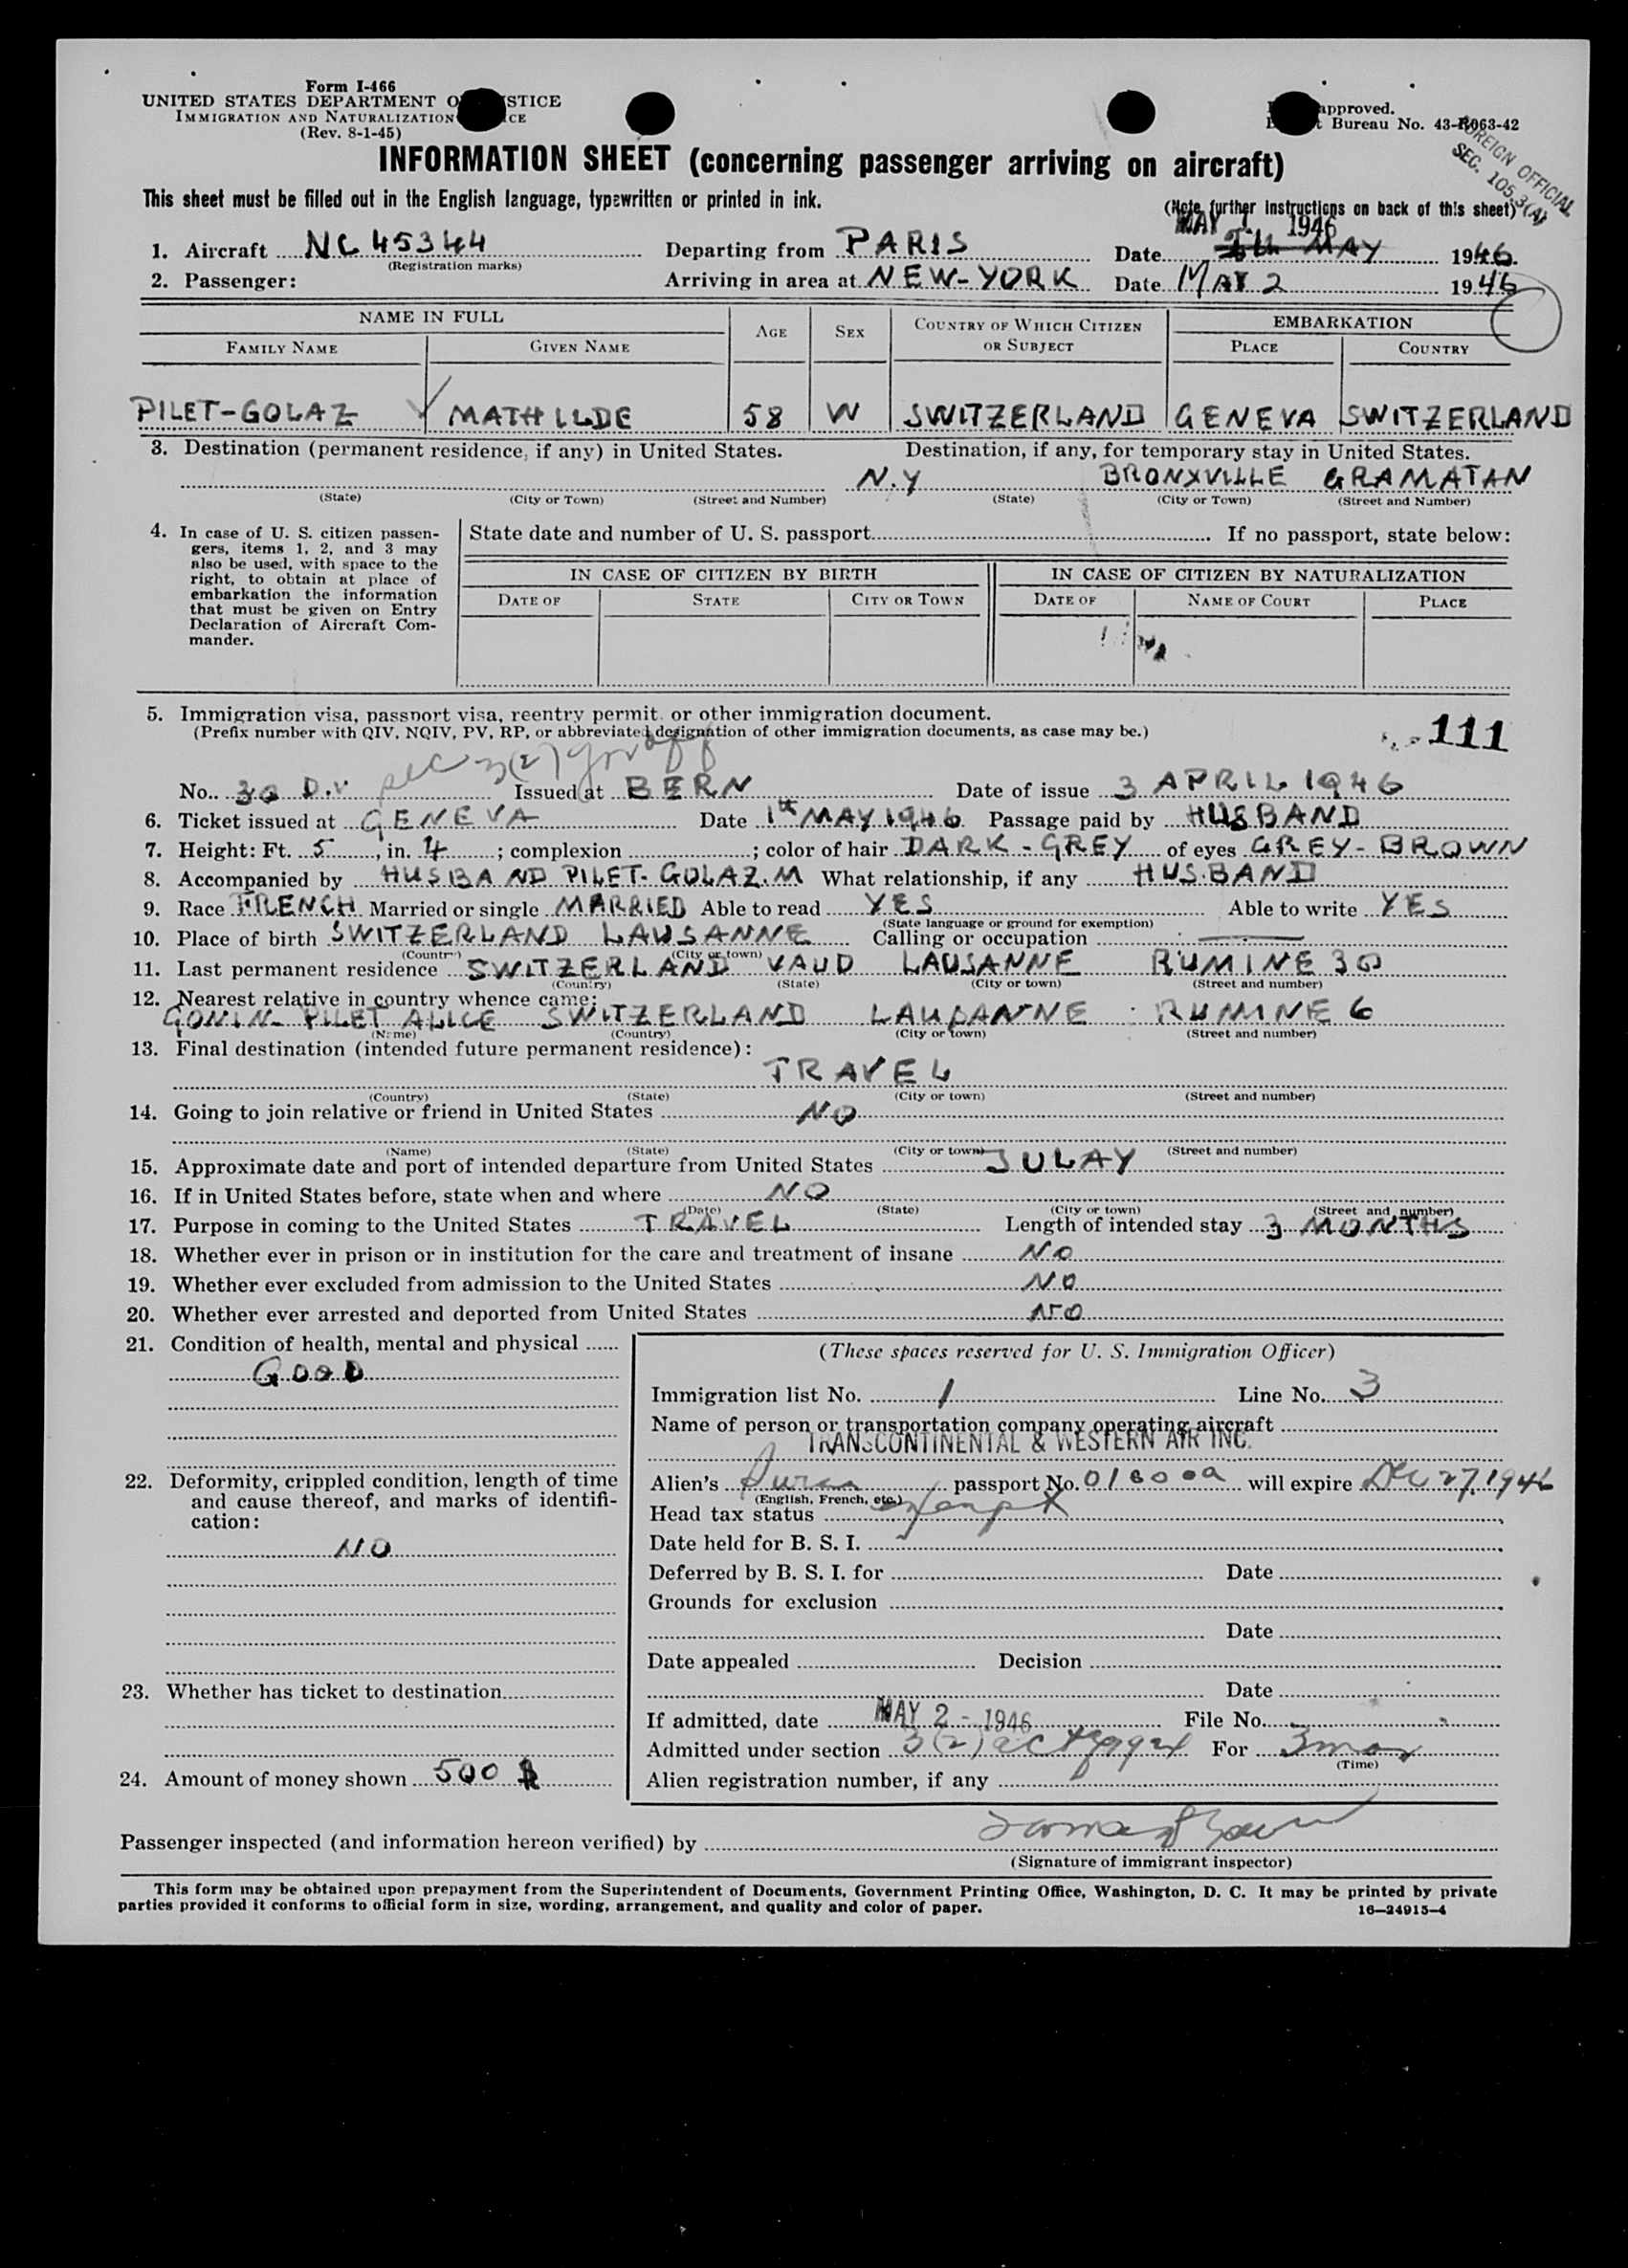 Form I-466
UNITED STATES DEPARTMENT O STICE
IMMIGRATION AND NATURALIZATION CE
(Rev. 8-1-45)
approved.
t Bureau No. 43-R063-42
FOREIGN OFFICIAL
SEC. 105.3(A)
INFORMATION SHEET (concerning passenger arriving on aircraft)
This sheet must be filled out in the English language, typewritten or printed in ink.
(Note further instructions on back of this sheet)
MAY 1 1946
1. Aircraft NC 45344 Departing from PARIS Date MAY 1946.
(Registration marks)
2. Passenger: Arriving in area at NEW-YORK Date MAY 2 1946
NAME IN FULL AGE SEX COUNTRY OF WHICH CITIZEN OR SUBJECT EMBARKATION
FAMILY NAME GIVEN NAME PLACE COUNTRY
PILET-GOLAZ MATHILDE 58 W SWITZERLAND GENEVA SWITZERLAND
3. Destination (permanent residence, if any) in United States. Destination, if any, for temporary stay in United States.
N.Y BRONXVILLE GRAMATAN
(State) (City or Town) (Street and Number) (State) (City or Town) (Street and Number)
4. In case of U. S. citizen passen-
gers, items 1, 2, and 3 may
also be used, with space to the
right, to obtain at place of
embarkation the information
that must be given on Entry
Declaration of Aircraft Com-
mander.
State date and number of U. S. passport If no passport, state below:
IN CASE OF CITIZEN BY BIRTH IN CASE OF CITIZEN BY NATURALIZATION
DATE OF STATE CITY OR TOWN DATE OF NAME OF COURT PLACE
5. Immigration visa, passport visa, reentry permit, or other immigration document.
(Prefix number with QIV, NQIV, PV, RP, or abbreviated designation of other immigration documents, as case may be.)
111
sec 3(2)
No. 30 D.V Issued at BERN Date of issue 3 APRIL 1946
6. Ticket issued at GENEVA Date 1st MAY 1946 Passage paid by HUSBAND
7. Height: Ft. 5, in. 4; complexion ; color of hair DARK-GREY of eyes GREY-BROWN
8. Accompanied by HUSBAND PILET-GOLAZ.M What relationship, if any HUSBAND
9. Race FRENCH Married or single MARRIED Able to read YES Able to write YES
(State language or ground for exemption)
10. Place of birth SWITZERLAND LAUSANNE Calling or occupation —
(Country) (City or town)
11. Last permanent residence SWITZERLAND VAUD LAUSANNE RUMINE 30
(Country) (State) (City or town) (Street and number)
12. Nearest relative in country whence came:
GONIN-PILET ALICE SWITZERLAND LAUSANNE RUMINE 6
(Name) (Country) (City or town) (Street and number)
13. Final destination (intended future permanent residence):
TRAVEL
(Country) (State) (City or town) (Street and number)
14. Going to join relative or friend in United States NO
(Name) (State) (City or town) (Street and number)
15. Approximate date and port of intended departure from United States JULAY
16. If in United States before, state when and where NO
(Date) (State) (City or town) (Street and number)
17. Purpose in coming to the United States TRAVEL Length of intended stay 3 MONTHS
18. Whether ever in prison or in institution for the care and treatment of insane NO
19. Whether ever excluded from admission to the United States NO
20. Whether ever arrested and deported from United States NO
21. Condition of health, mental and physical
GOOD
22. Deformity, crippled condition, length of time
and cause thereof, and marks of identifi-
cation:
NO
23. Whether has ticket to destination
24. Amount of money shown 500 $
(These spaces reserved for U. S. Immigration Officer)
Immigration list No. 1 Line No. 3
Name of person or transportation company operating aircraft
TRANSCONTINENTAL & WESTERN AIR INC.
Alien's passport No. will expire Dec 27, 1946
(English, French, etc.)
Head tax status exempt
Date held for B. S. I.
Deferred by B. S. I. for Date
Grounds for exclusion
Date
Date appealed Decision
Date
If admitted, date MAY 2 - 1946 File No.
Admitted under section 3(2) act of 1924 For 3 mos
(Time)
Alien registration number, if any
Passenger inspected (and information hereon verified) by
(Signature of immigrant inspector)
This form may be obtained upon prepayment from the Superintendent of Documents, Government Printing Office, Washington, D. C. It may be printed by private
parties provided it conforms to official form in size, wording, arrangement, and quality and color of paper.
16—24915-4